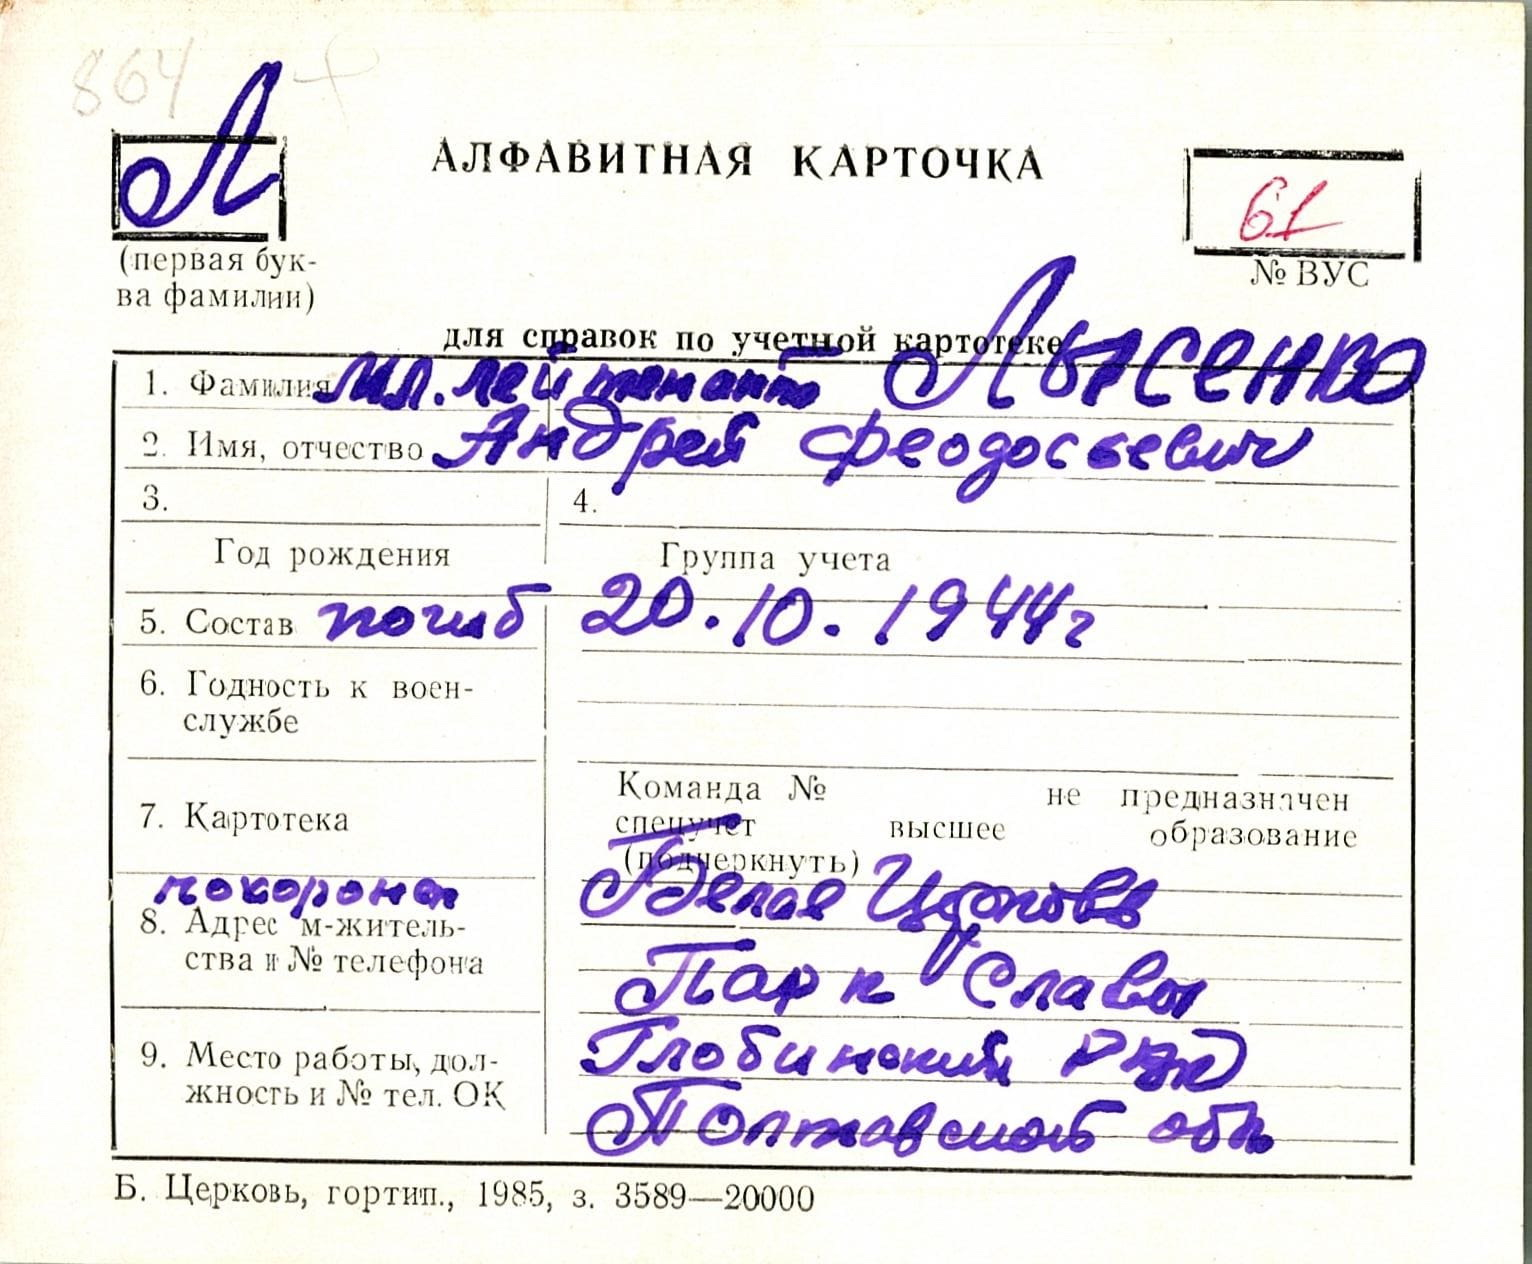 864 +
Л
АЛФАВИТНАЯ КАРТОЧКА
61
(первая бук-
ва фамилии)
№ ВУС
для справок по учетной картотеке
1. Фамилия мл. лейтенант Лысенко
2. Имя, отчество Андрей Феодосьевич
3.
4.
Год рождения
Группа учета
5. Состав погиб 20.10.1944г
6. Годность к воен-
службе
7. Картотека
Команда № не предназначен
спецучет высшее образование
(подчеркнуть)
похоронен Белая Церковь
8. Адрес м-житель-
ства и № телефона
Парк Славы
9. Место работы, дол-
жность и № тел. ОК
Глобинский РВК
Полтавской обл
Б. Церковь, гортип., 1985, з. 3589—20000